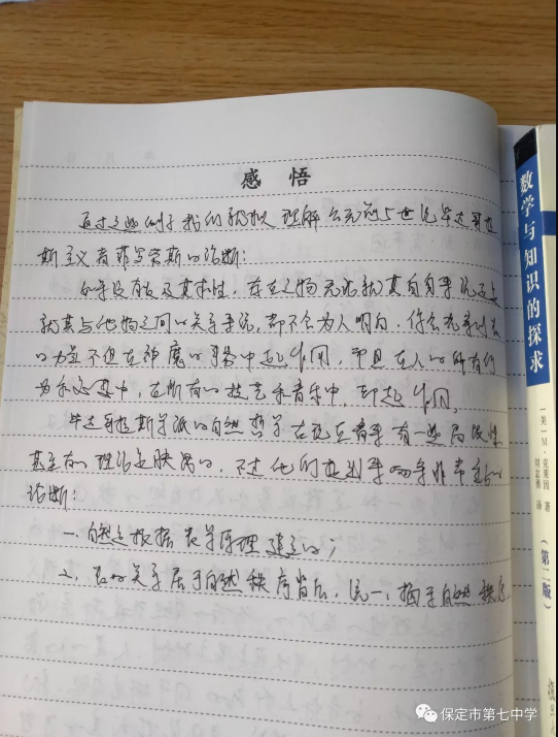 感悟
通过这些例子我们就可以理解公元前5世纪毕达哥拉
斯主义者菲洛劳斯的论断:
如果没有数及其本性,存在之物无论就其自身来说还是
就其与他物之间的关系来说,都不会为人明白,你会观察到数
的力量不但在神魔的事务中起作用,而且在人的所有行
为和思想中,在所有的技艺和音乐中,都起作用。
毕达哥拉斯学派的自然哲学在现在看来有一些局限性
甚至有的理论是缺陷的,不过他们提到了两条非常重要的
论断:
一、自然是根据数学原理建立的;
二、数的关系居于自然秩序背后,统一、揭示自然秩序。
数学与知识的探求
[美] M·克莱因 著
刘志勇 译
(第二版)
保定市第七中学